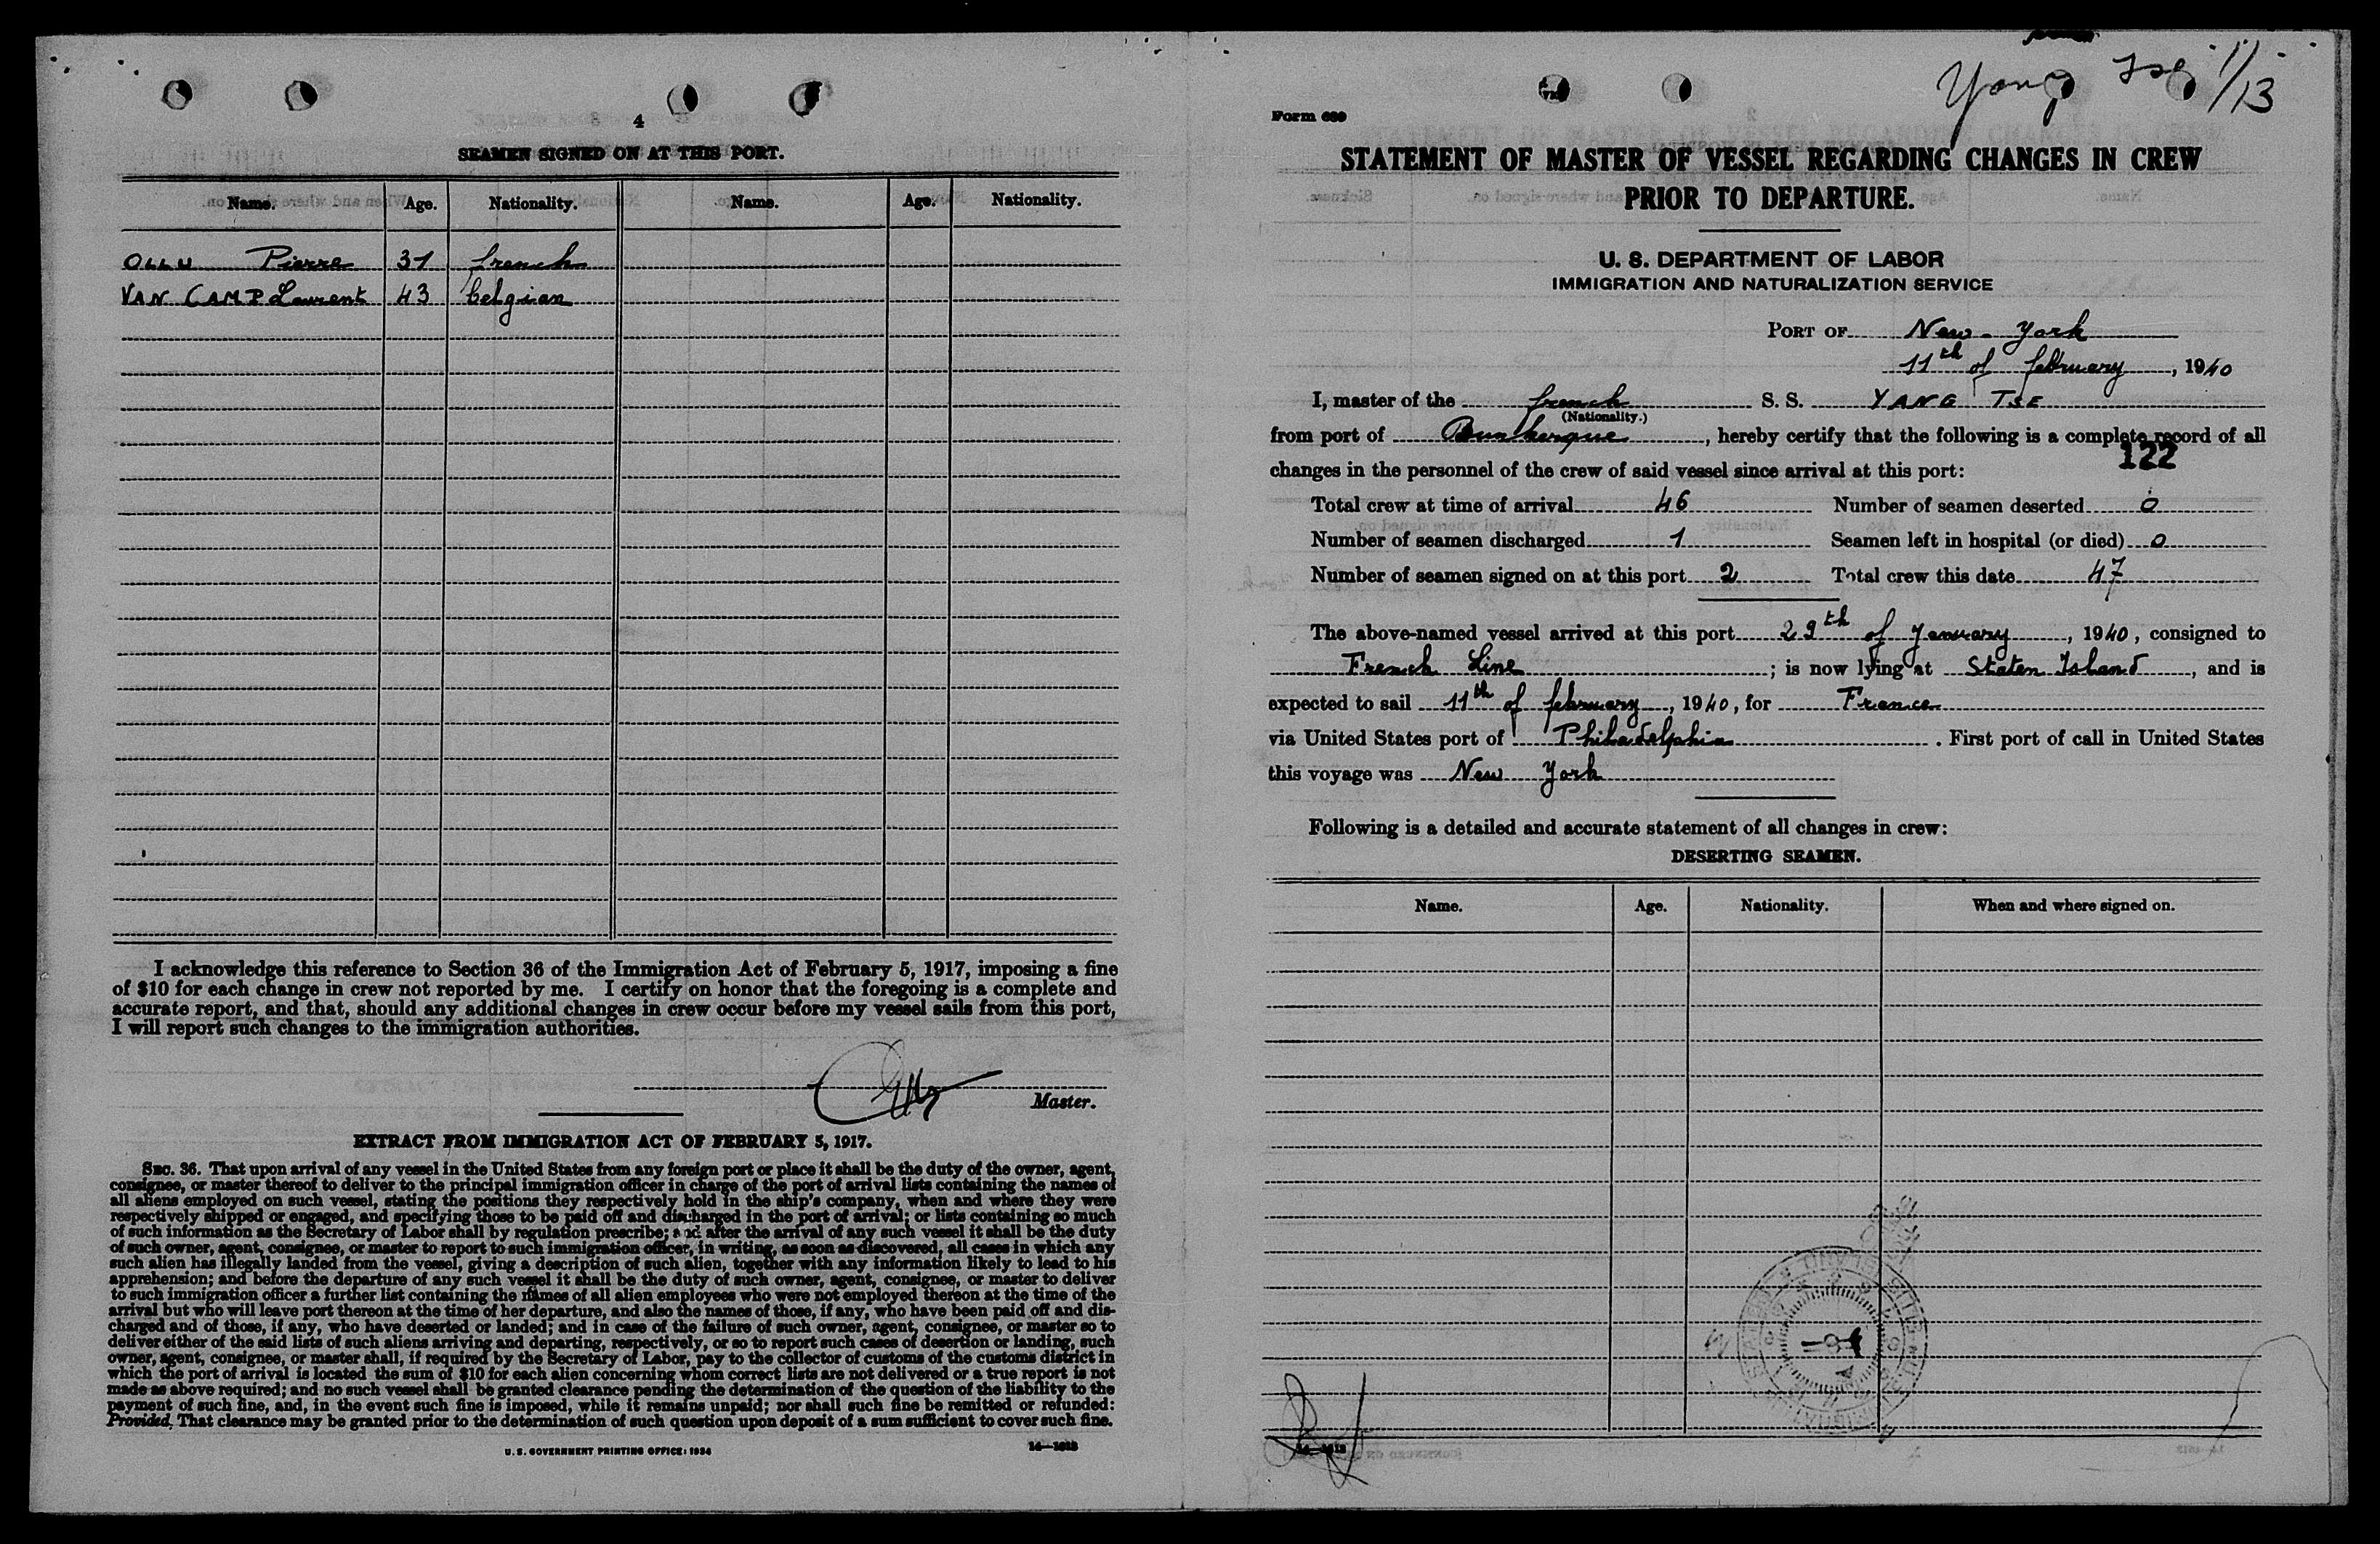 4
SEAMEN SIGNED ON AT THIS PORT.
Name. Age. Nationality. Name. Age. Nationality.
OLLU Pierre 31 french
VAN CAMP Laurent 43 belgian
I acknowledge this reference to Section 36 of the Immigration Act of February 5, 1917, imposing a fine
of $10 for each change in crew not reported by me. I certify on honor that the foregoing is a complete and
accurate report, and that, should any additional changes in crew occur before my vessel sails from this port,
I will report such changes to the immigration authorities.
Master.
EXTRACT FROM IMMIGRATION ACT OF FEBRUARY 5, 1917.
SEC. 36. That upon arrival of any vessel in the United States from any foreign port or place it shall be the duty of the owner, agent,
consignee, or master thereof to deliver to the principal immigration officer in charge of the port of arrival lists containing the names of
all aliens employed on such vessel, stating the positions they respectively hold in the ship's company, when and where they were
respectively shipped or engaged, and specifying those to be paid off and discharged in the port of arrival; or lists containing so much
of such information as the Secretary of Labor shall by regulation prescribe; and after the arrival of any such vessel it shall be the duty
of such owner, agent, consignee, or master to report to such immigration officer, in writing, as soon as discovered, all cases in which any
such alien has illegally landed from the vessel, giving a description of such alien, together with any information likely to lead to his
apprehension; and before the departure of any such vessel it shall be the duty of such owner, agent, consignee, or master to deliver
to such immigration officer a further list containing the names of all alien employees who were not employed thereon at the time of the
arrival but who will leave port thereon at the time of her departure, and also the names of those, if any, who have been paid off and dis-
charged and of those, if any, who have deserted or landed; and in case of the failure of such owner, agent, consignee, or master so to
deliver either of the said lists of such aliens arriving and departing, respectively, or so to report such cases of desertion or landing, such
owner, agent, consignee, or master shall, if required by the Secretary of Labor, pay to the collector of customs of the customs district in
which the port of arrival is located the sum of $10 for each alien concerning whom correct lists are not delivered or a true report is not
made as above required; and no such vessel shall be granted clearance pending the determination of the question of the liability to the
payment of such fine, and, in the event such fine is imposed, while it remains unpaid; nor shall such fine be remitted or refunded:
Provided, That clearance may be granted prior to the determination of such question upon deposit of a sum sufficient to cover such fine.
U. S. GOVERNMENT PRINTING OFFICE: 1934 14—1613
Yang Tse 1/13
Form 689
STATEMENT OF MASTER OF VESSEL REGARDING CHANGES IN CREW
PRIOR TO DEPARTURE.
U. S. DEPARTMENT OF LABOR
IMMIGRATION AND NATURALIZATION SERVICE
PORT OF New-York
11th of february, 1940
I, master of the french S. S. YANG TSE
(Nationality.)
from port of Dunkerque, hereby certify that the following is a complete record of all
122
changes in the personnel of the crew of said vessel since arrival at this port:
Total crew at time of arrival 46 Number of seamen deserted 0
Number of seamen discharged 1 Seamen left in hospital (or died) 0
Number of seamen signed on at this port 2 Total crew this date 47
The above-named vessel arrived at this port 29th of January, 1940, consigned to
French Line; is now lying at Staten Island, and is
expected to sail 11th of february, 1940, for France
via United States port of Philadelphia. First port of call in United States
this voyage was New York
Following is a detailed and accurate statement of all changes in crew:
DESERTING SEAMEN.
Name. Age. Nationality. When and where signed on.
14—1613